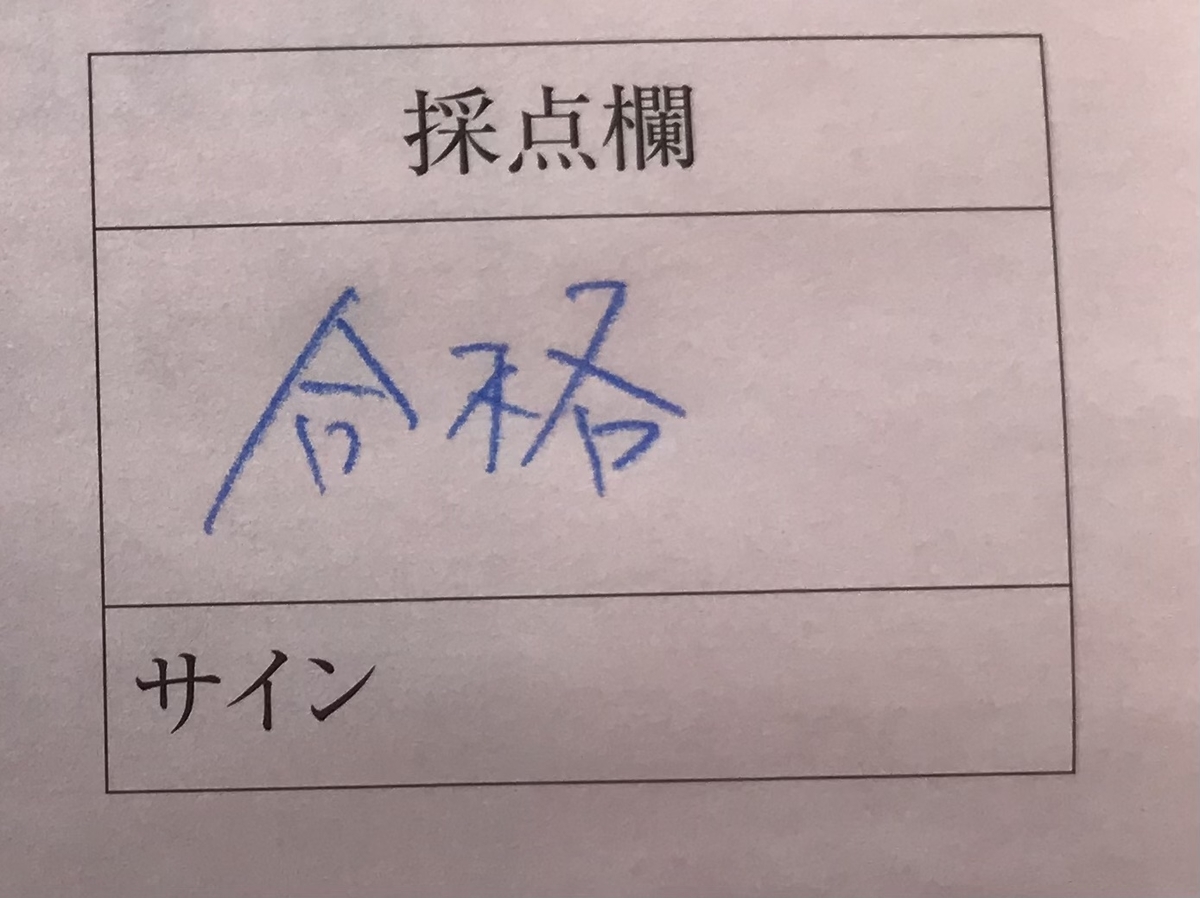 採点欄
合格
サイン